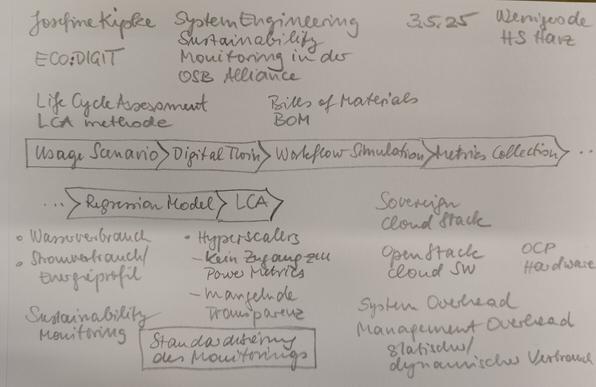 Josefine Kipke
System Engineering
3.5.25
Wernigerode
HS Harz
ECO:DIGIT
Sustainability
Monitoring in der
OSB Alliance
Life Cycle Assessment
LCA methode
Bills of Materials
BOM
Usage Scenario
Digital Twin
Workflow Simulation
Metrics Collection
...
...
Regression Model
LCA
• Wasserverbrauch
• Stromverbrauch/
Energieprofil
Sustainability
Monitoring
• Hyperscalers
– Kein Zugang zu
Power Metrics
– mangelnde
Transparenz
Standardisierung
des Monitorings
Sovereign
Cloud Stack
OpenStack
Cloud SW
OCP
Hardware
System Overhead
Management Overhead
statischer/
dynamischer Verbrauch